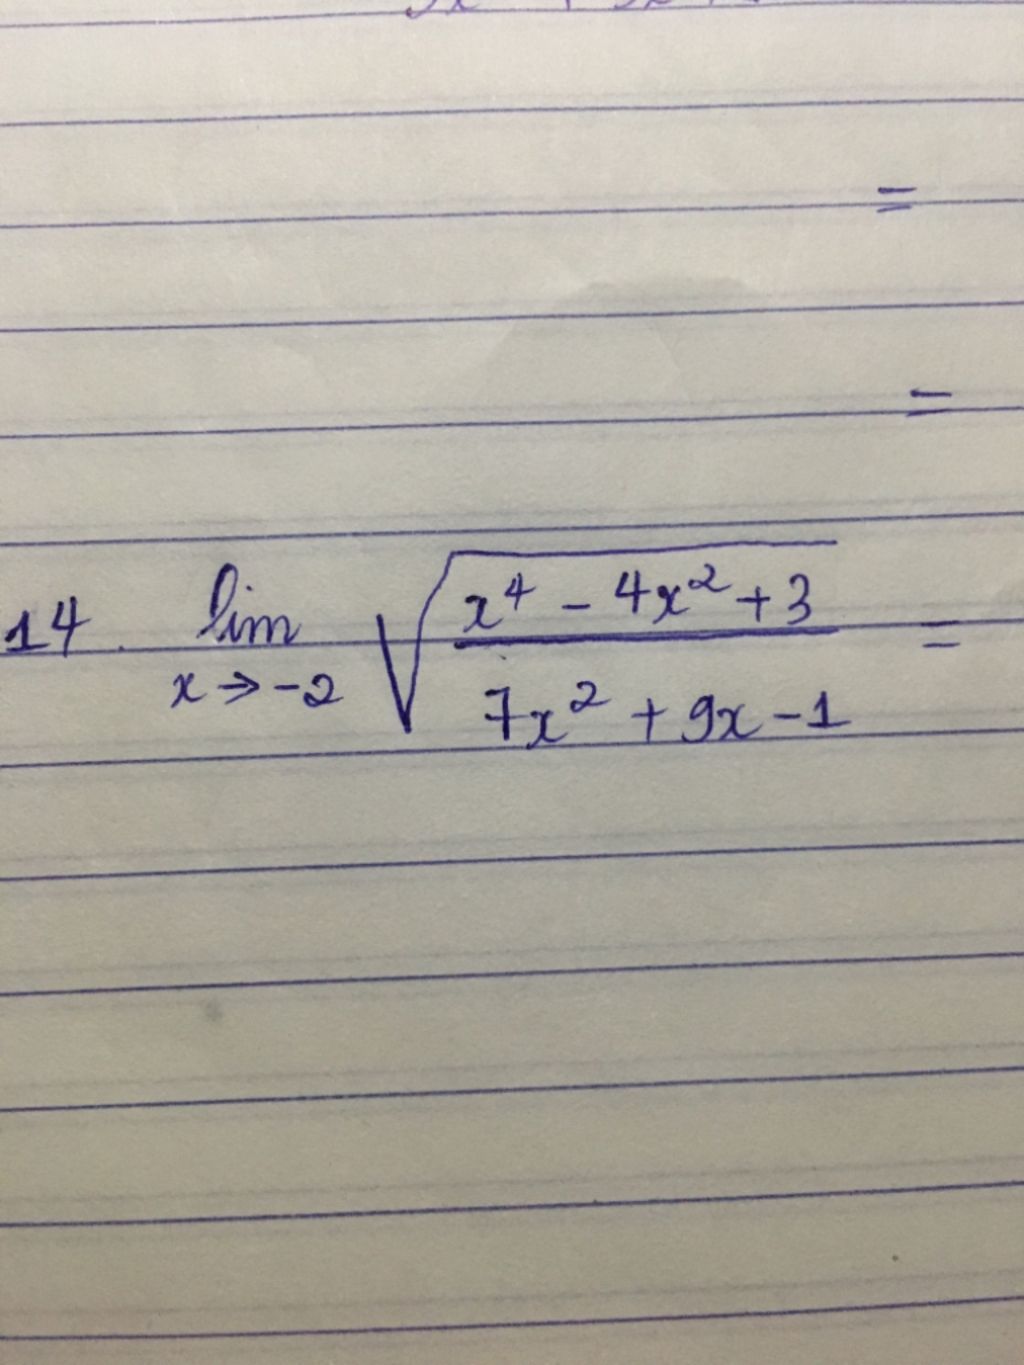 =
=
14. lim x→-2 √((x⁴ - 4x² + 3)/(7x² + 9x - 1)) =